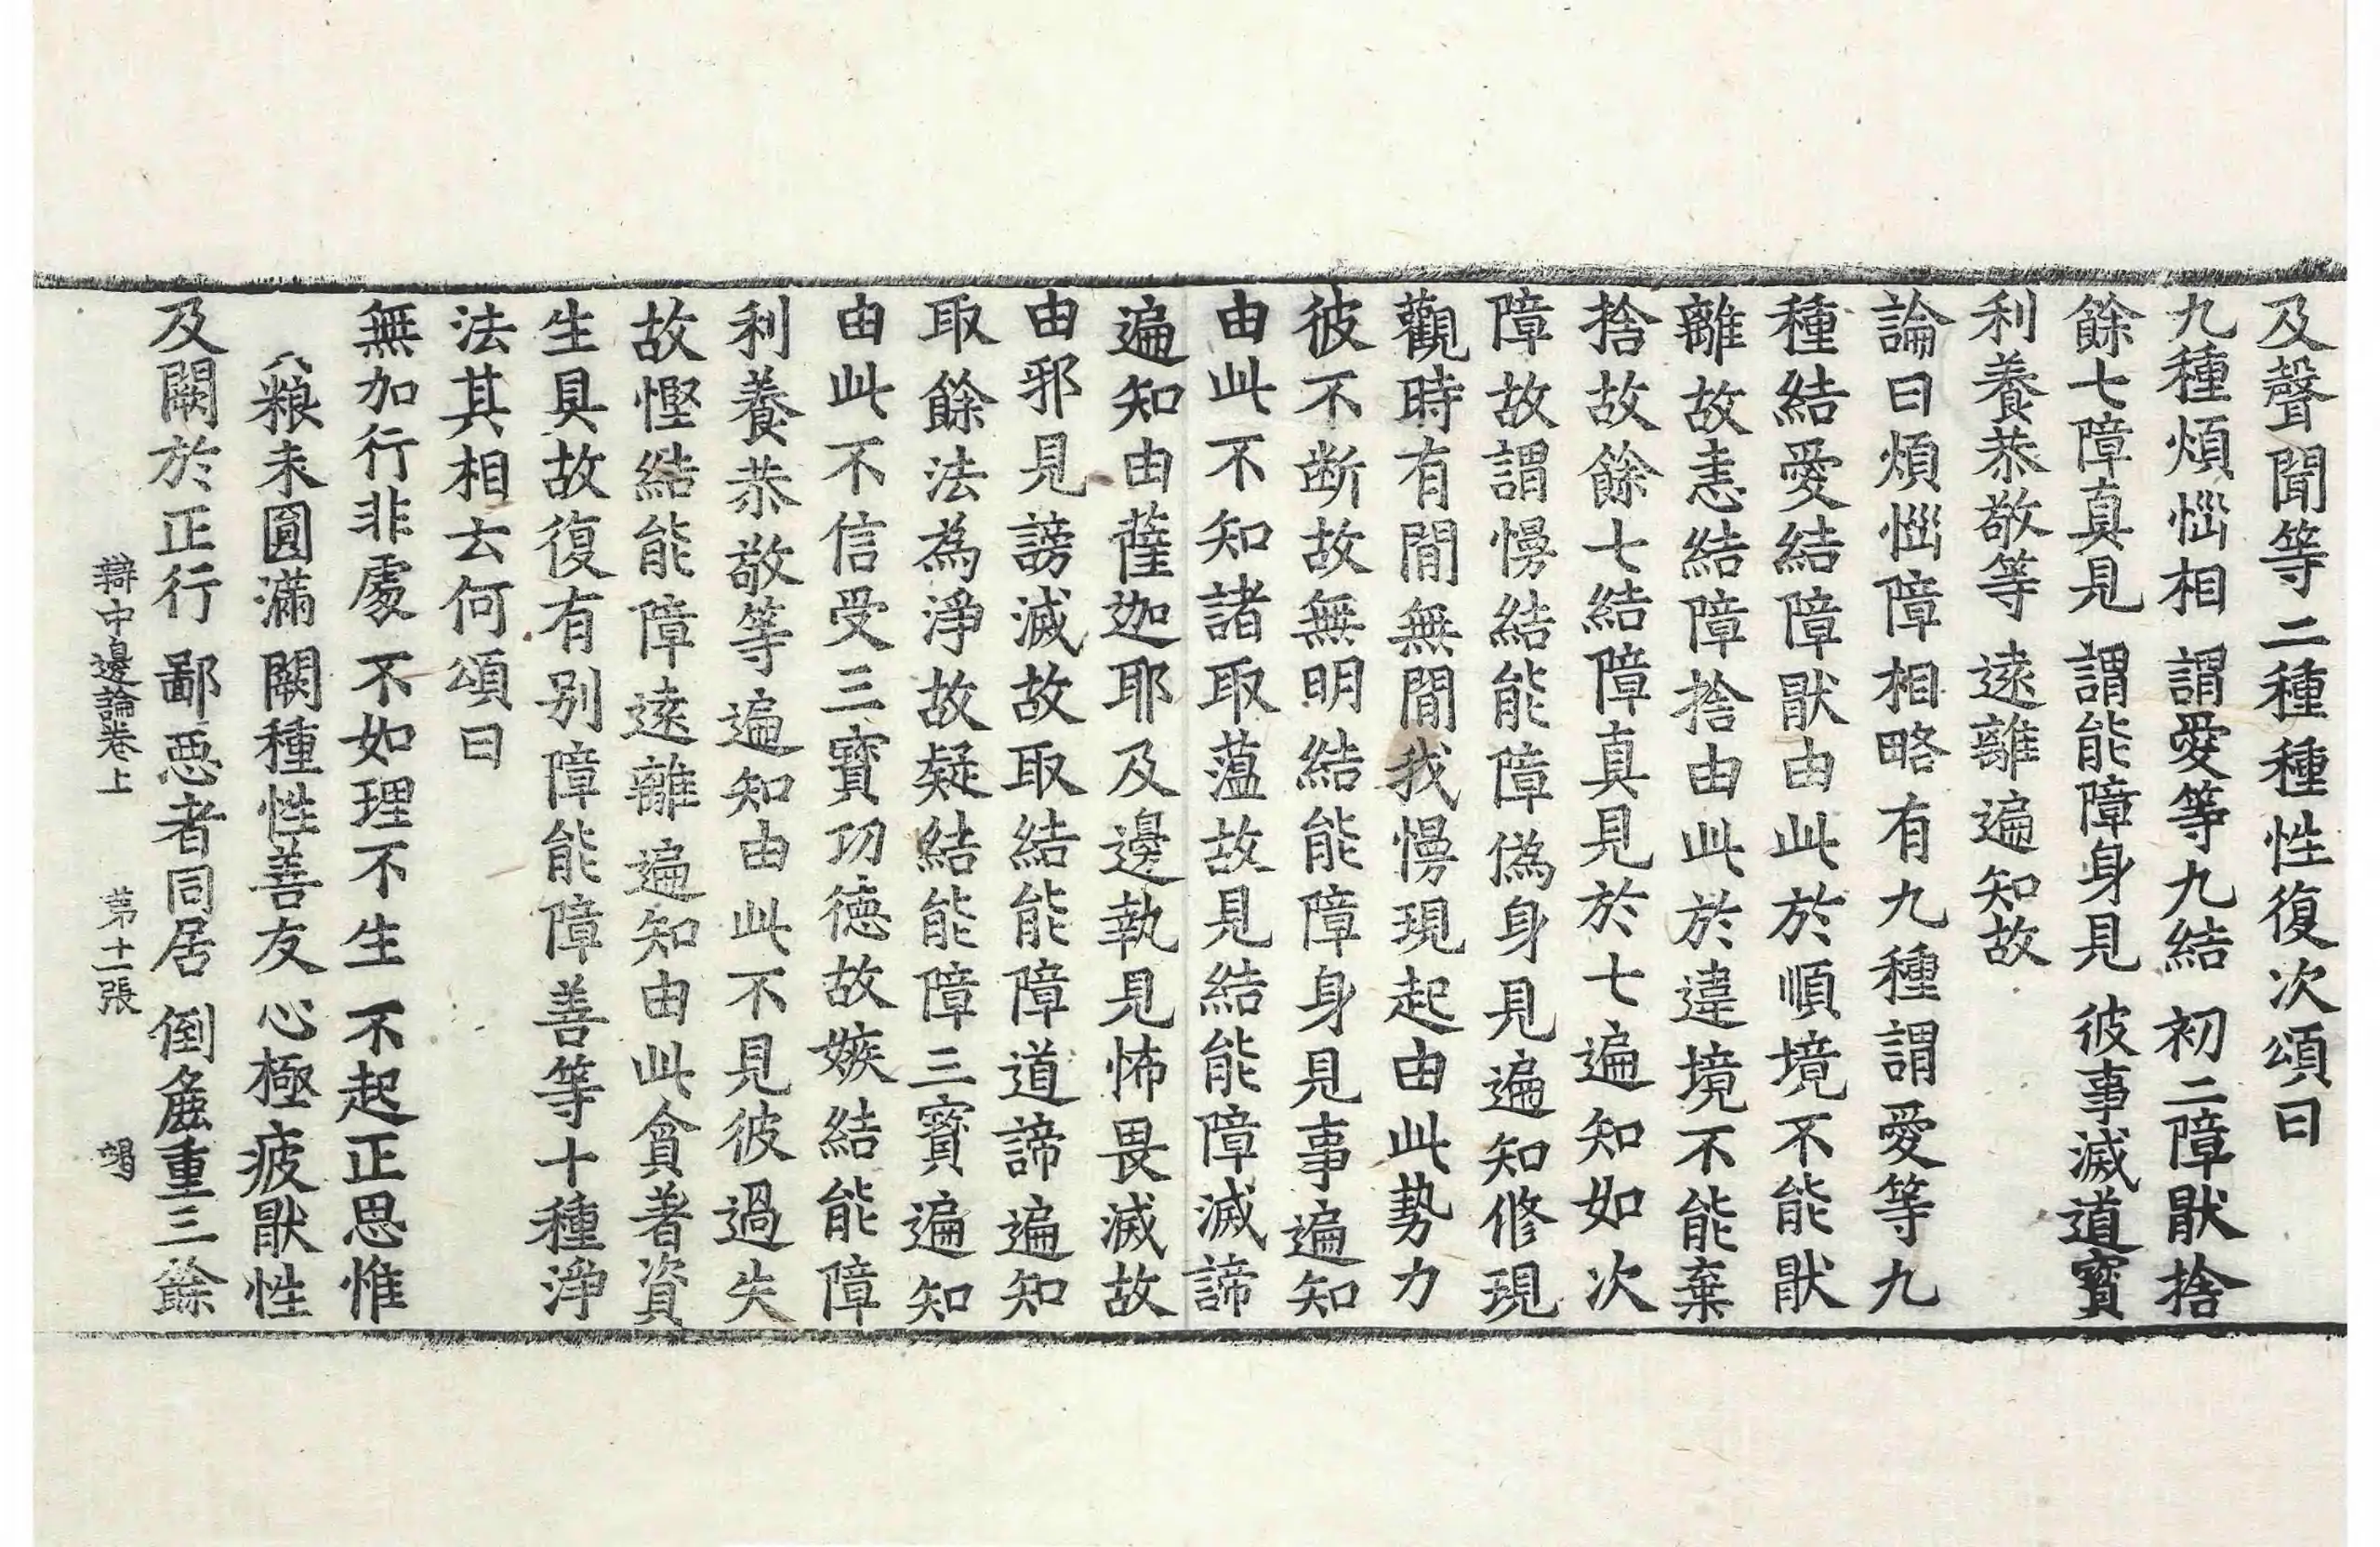 及聲聞等二種種性復次頌曰
九種煩惱相 謂愛等九結 初二障猒捨
餘七障真見 謂能障身見 彼事滅道寶
利養恭敬等 遠離遍知故
論曰煩惱障相略有九種謂愛等九
種結愛結障猒由此於順境不能猒
離故恚結障捨由此於違境不能棄
捨故餘七結障真見於七遍知如次
障故謂慢結能障偽身見遍知修現
觀時有間無間我慢現起由此勢力
彼不断故無明結能障身見事遍知
由此不知諸取蕰故見結能障滅諦
遍知由薩迦耶及邊執見怖畏滅故
由邪見謗滅故取結能障道諦遍知
取餘法為淨故疑結能障三寶遍知
由此不信受三寶功德故嫉結能障
利養恭敬等遍知由此不見彼過失
故慳結能障遠離遍知由此貪著資
生具故復有別障能障善等十種淨
法其相云何頌曰
無加行非處 不如理不生 不起正思惟
粮未圓滿 闕種性善友 心極疲猒性
及闕於正行 鄙惡者同居 倒麁重三餘
辯中邊論卷上 第十一張